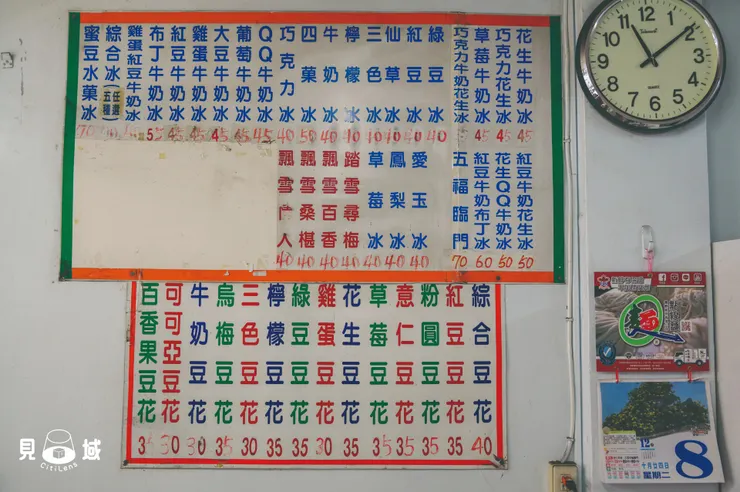 花生牛奶冰 45
巧克力花生冰 45
草莓牛奶冰 45
巧克力牛奶花生冰
綠豆冰 40
紅豆冰 40
仙草冰 40
三色冰 40
檸檬冰 40
牛奶冰 40
四菓冰 50
巧克力冰 40
QQ牛奶冰 45
葡萄牛奶冰 45
大豆牛奶冰 45
雞蛋牛奶冰 45
紅豆牛奶冰 45
布丁牛奶冰 55
雞蛋紅豆牛奶冰
綜合冰 任選五種
蜜豆冰菓冰 70
紅豆牛奶花生冰 50
花生QQ牛奶冰 50
紅豆牛奶布丁冰 60
五福臨門 70
愛玉冰 40
鳳梨冰 40
草莓冰 40
踏雪尋梅 40
飄雪百香 40
飄雪桑椹 40
飄雪伊人 40
綜合豆花 40
紅豆豆花 35
粉圓豆花 35
意仁豆花 35
草莓豆花 35
花生豆花
雞蛋豆花 30
綠豆豆花 30
檸檬豆花 30
三色豆花 30
烏梅豆花 35
牛奶豆花 30
可可亞豆花 30
百香果豆花 35
12 11 10 9 8 7 6 5 4 3 2 1
QUARTZ
麵
12
8
十月廿四日
星期二
見域
CitiLens